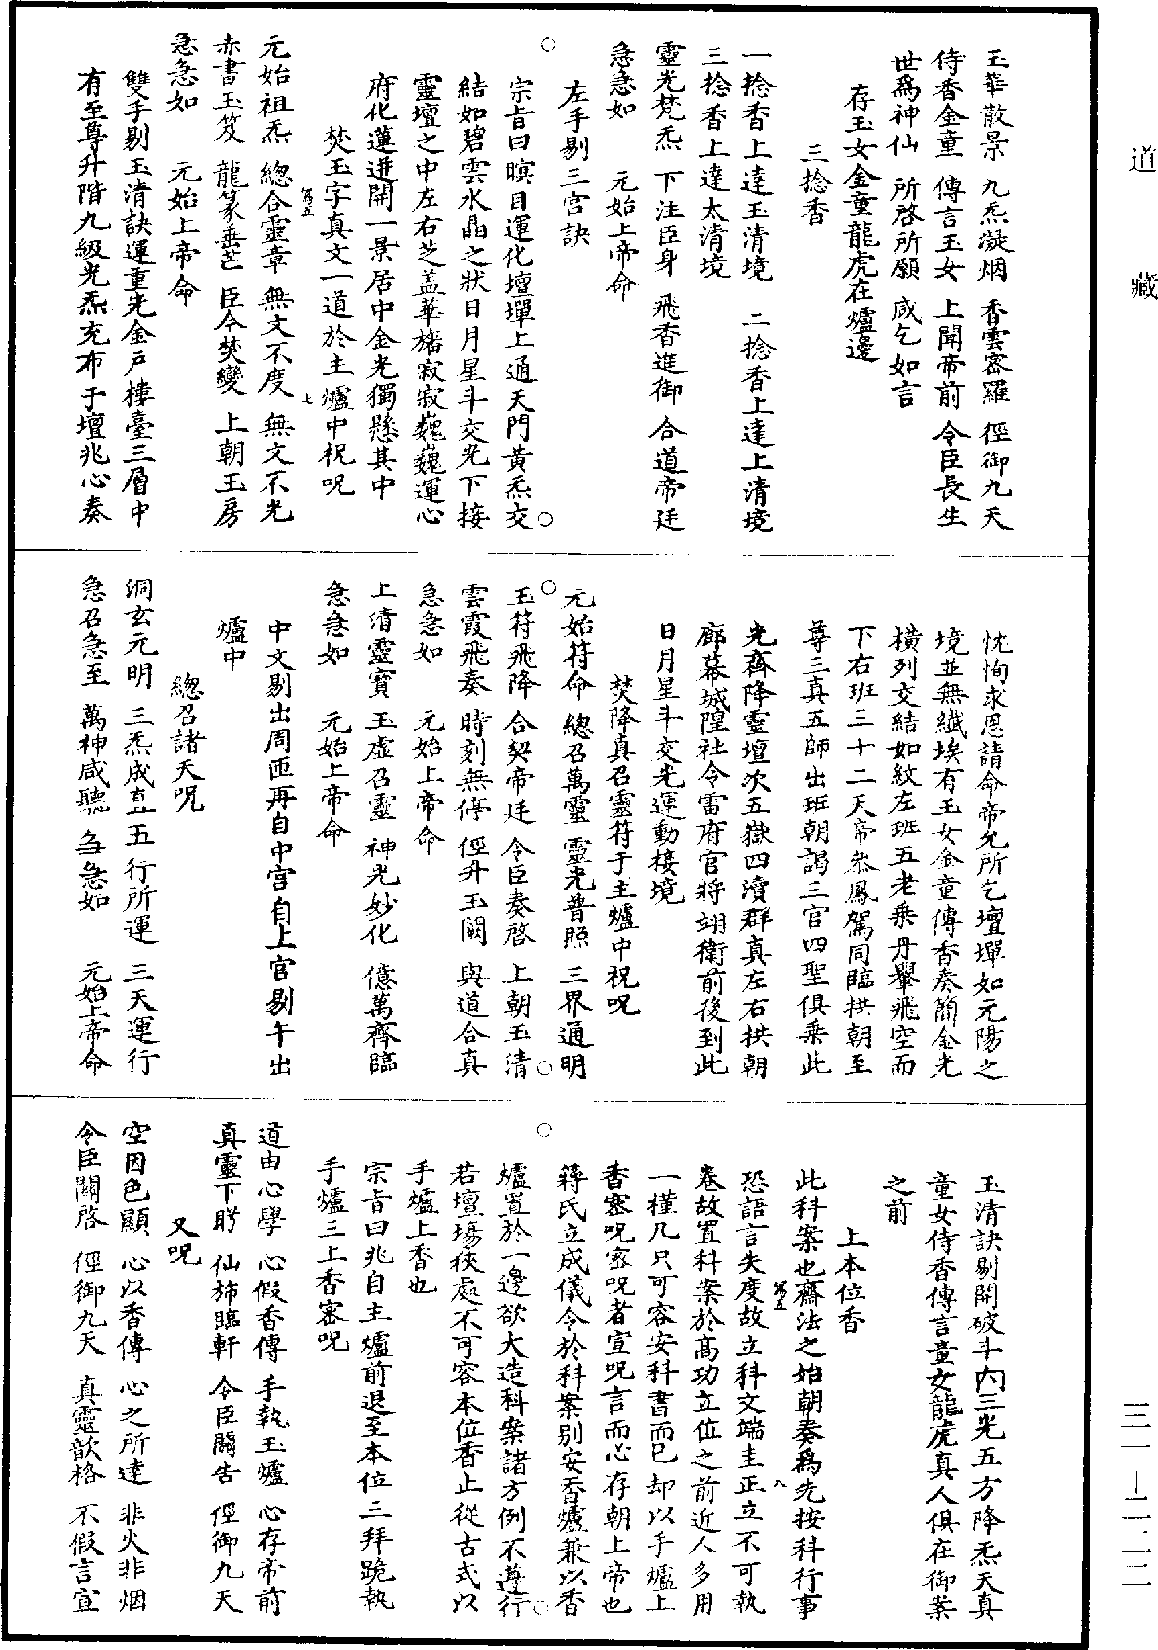 道藏
三一—二一二
玉華散景　九炁凝烟　香雲密羅　徑御九天
侍香金童　傳言玉女　上聞帝前　令臣長生
世爲神仙　所啓所願　咸乞如言
存玉女金童龍虎在爐邊
三捻香
一捻香上達玉清境　二捻香上達上清境
三捻香上達太清境
靈光梵炁　下注臣身　飛香進御　合道帝廷
急急如　元始上帝命
左手剔三宫訣
宗旨曰瞑目運化壇墠上通天門黄炁交
結如碧雲水晶之狀日月星斗交光下接
靈壇之中左右芝蓋華旛寂寂巍巍運心
府化蓮迸開一景居中金光獨懸其中
焚玉字真文一道於主爐中祝呪
元始祖炁　總合靈章　無文不度　無文不光
赤書玉笈　龍篆垂芒　臣今焚變　上朝玉房
急急如　元始上帝命
雙手剔玉清訣運重光金户樓臺三層中
有至尊升階九級光炁充布于壇兆心奏
忱恂求恩請命帝允所乞壇墠如元陽之
境並無纖埃有玉女金童傳香奏簡金光
橫列交結如紋左班五老乗丹轝飛空而
下右班三十二天帝恭鳳駕同臨拱朝至
尊三真五師出班朝謁三官四聖俱乗此
光齊降靈壇次五嶽四瀆群真左右拱朝
廊幕城隍社令雷府官將翊衛前後到此
日月星斗交光運動接境
焚降真召靈符于主爐中祝呪
元始符命　總召萬靈　靈光普照　三界通明
玉符飛降　合契帝廷　令臣奏啓　上朝玉清
雲霞飛奏　時刻無停　徑升玉闕　與道合真
急急如　元始上帝命
上清靈寳　玉虚召靈　神光妙化　億萬齊臨
急急如　元始上帝命
中文剔出周匝再自中宫自上官剔午出
爐中
總召諸天呪
洞玄元明　三炁成真　五行所運　三天運行
急召急至　萬神咸聽　急急如　元始上帝命
玉清訣剔開破斗内三光五方降炁天真
童女侍香傳言童女龍虎真人俱在御案
之前
上本位香
此科案也齋法之始朝奏爲先按科行事
恐語言失度故立科文端圭正立不可執
卷故置科案於高功立位之前近人多用
一檯几只可容安科書而已却以手爐上
香密呪密呪者宣呪言而心存朝上帝也
蔣氏立成儀令於科案别安香爐兼以香
爐置於一邊欲大造科案諸方例不遵行
若壇場狹處不可容本位香止從古式以
手爐上香也
宗旨曰兆自主爐前退至本位三拜跪執
手爐三上香密呪
道由心學　心假香傳　手執玉爐　心存帝前
真靈下盻　仙旆臨軒　令臣關告　徑御九天
又呪
空因色顯　心以香傳　心之所達　非火非烟
令臣關啓　徑御九天　真靈歆格　不假言宣